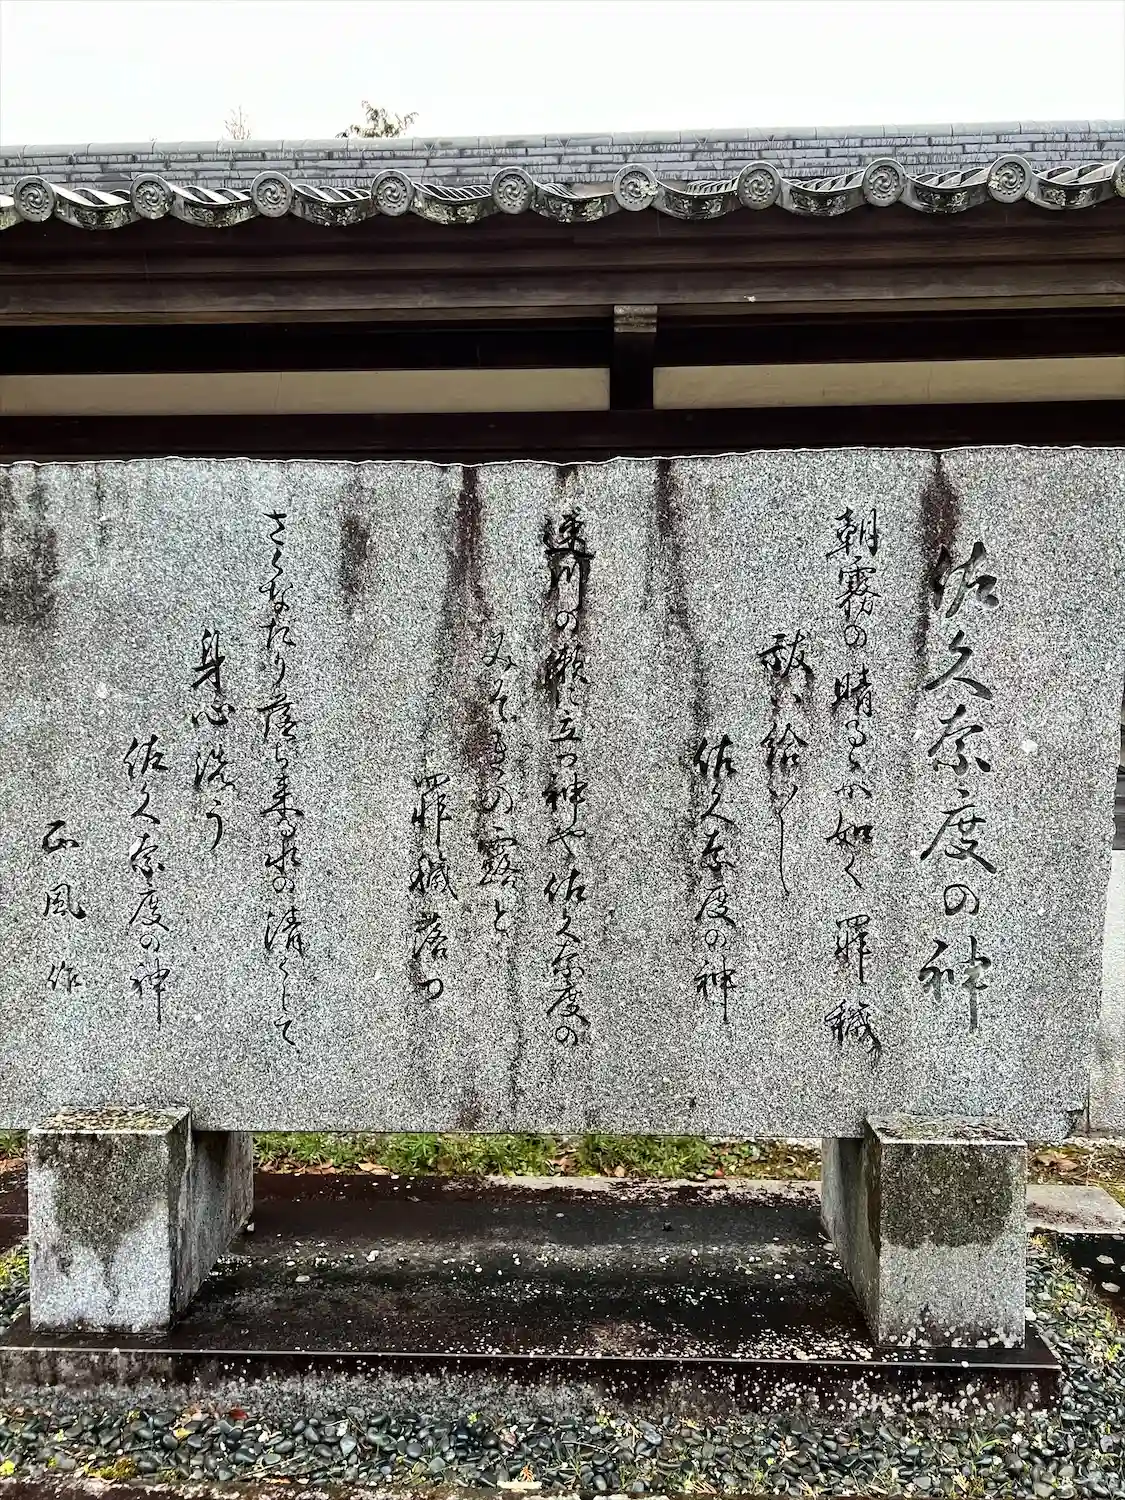 佐久奈度の神
朝霧の晴るゝが如く罪穢
祓い給いし
佐久奈度の神
速川の瀬に立つ神や佐久奈度の
みそぎの露と
罪穢落つ
さくなだり落ち来る水の清くして
身心洗う
佐久奈度の神
正風作